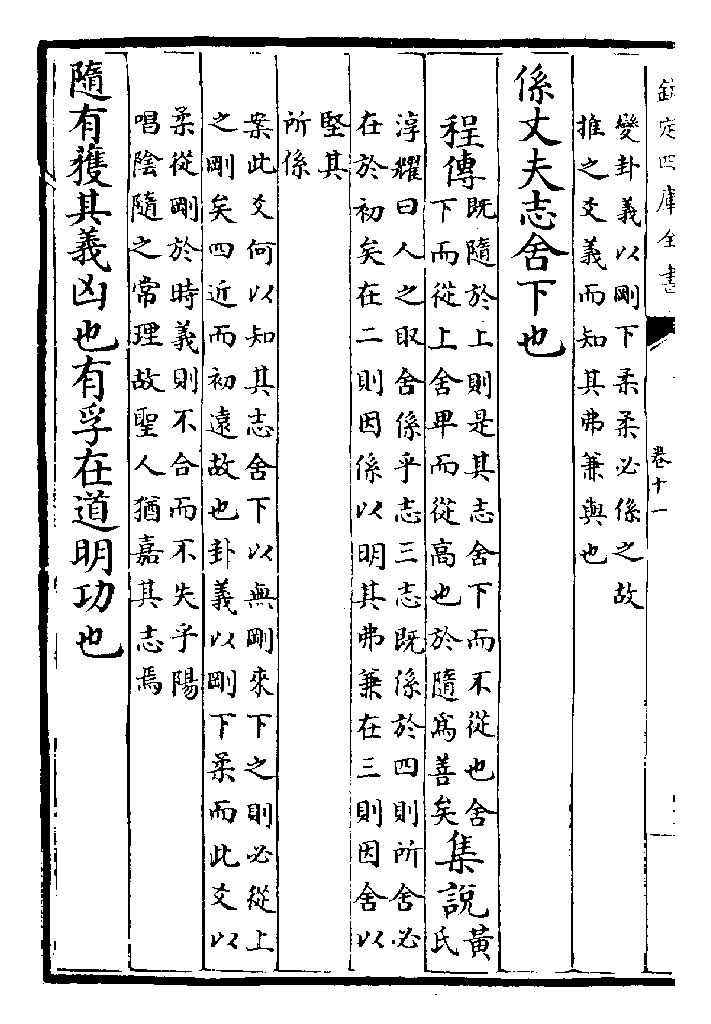 欽定四庫全書
卷十一
變卦義以剛下柔柔必係之故
推之爻義而知其弗兼與也
係丈夫志舍下也
程傳
既隨於上則是其志舍下而不從也舍
下而從上舍卑而從高也於隨爲善矣
集說
黃
氏
淳耀曰人之取舍係乎志三志既係於四則所舍必
在於初矣在二則因係以明其弗兼在三則因舍以
堅其
所係
案此爻何以知其志舍下以無剛來下之則必從上
之剛矣四近而初遠故也卦義以剛下柔而此爻以
柔從剛於時義則不合而不失乎陽
唱陰隨之常理故聖人猶嘉其志焉
隨有獲其義凶也有孚在道明功也